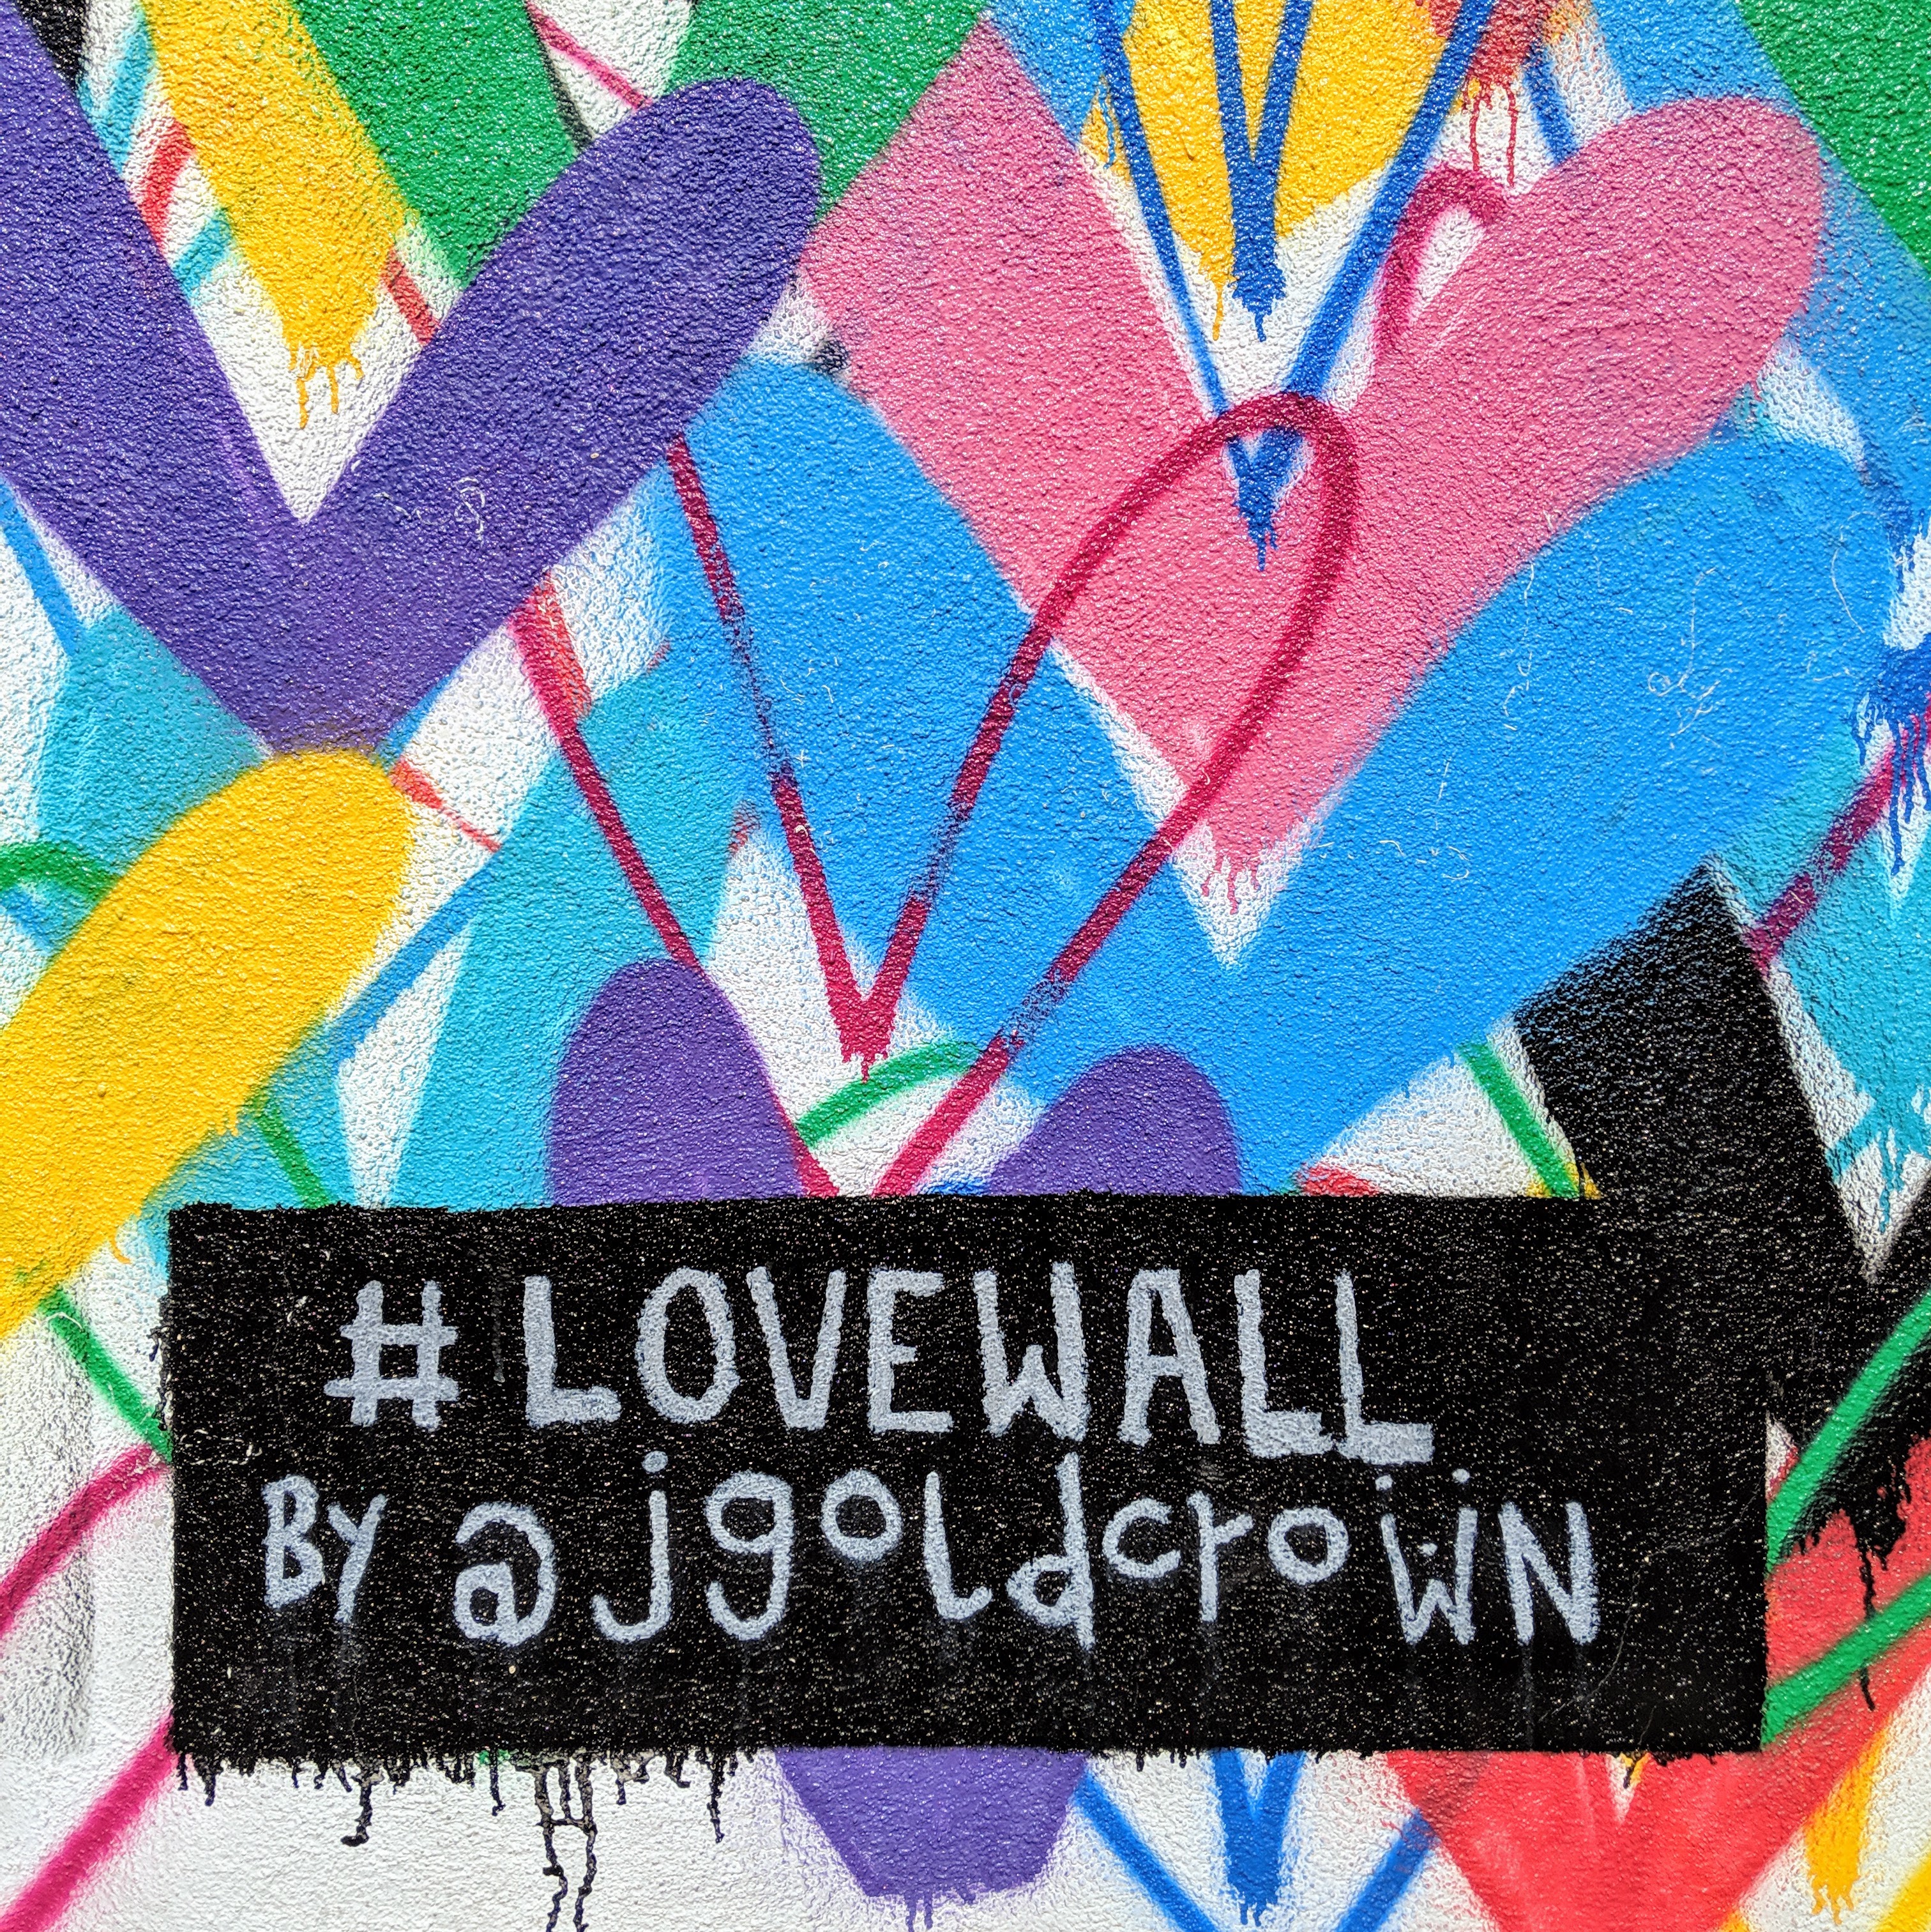 #LOVEWALL
By @jgoldcrowN